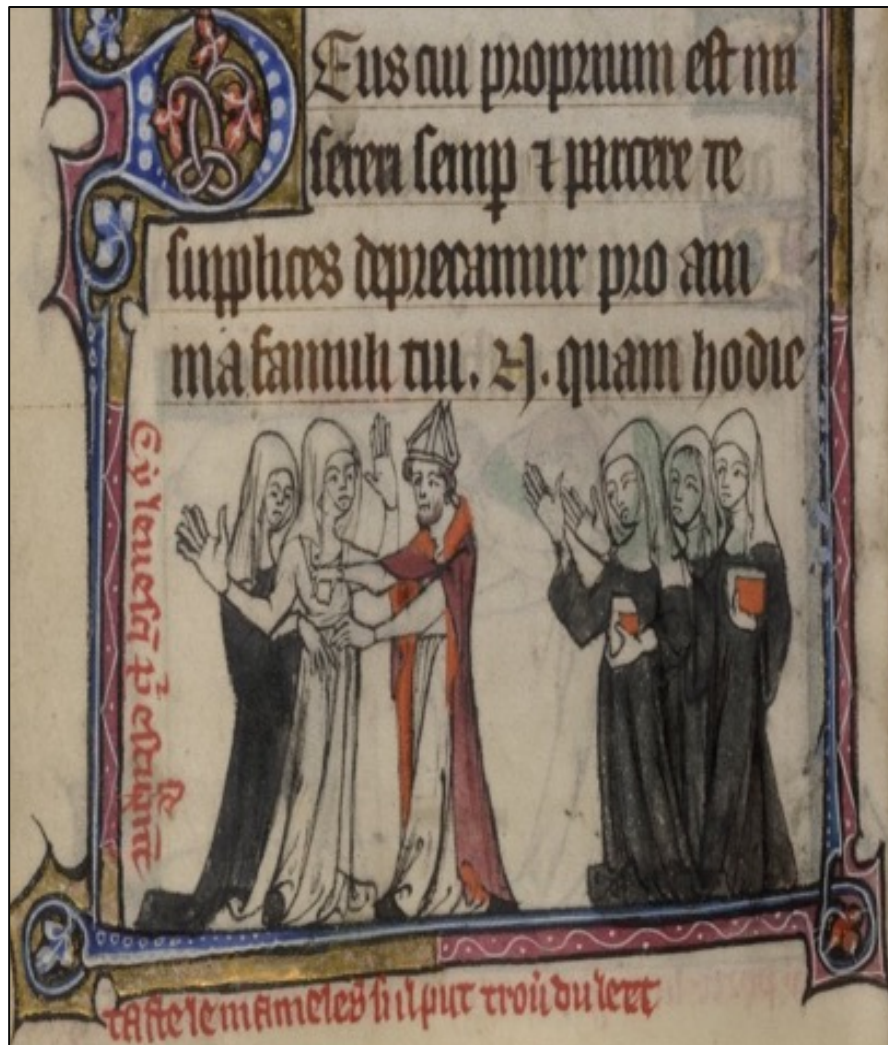 DEus cui proprium est mi
sereri semp ⁊ parcere te
supplices deprecamur pro ani
ma famuli tui. N. quam hodie
Cy leuesq̄
taste le mameles si il put trou᷑ du leet